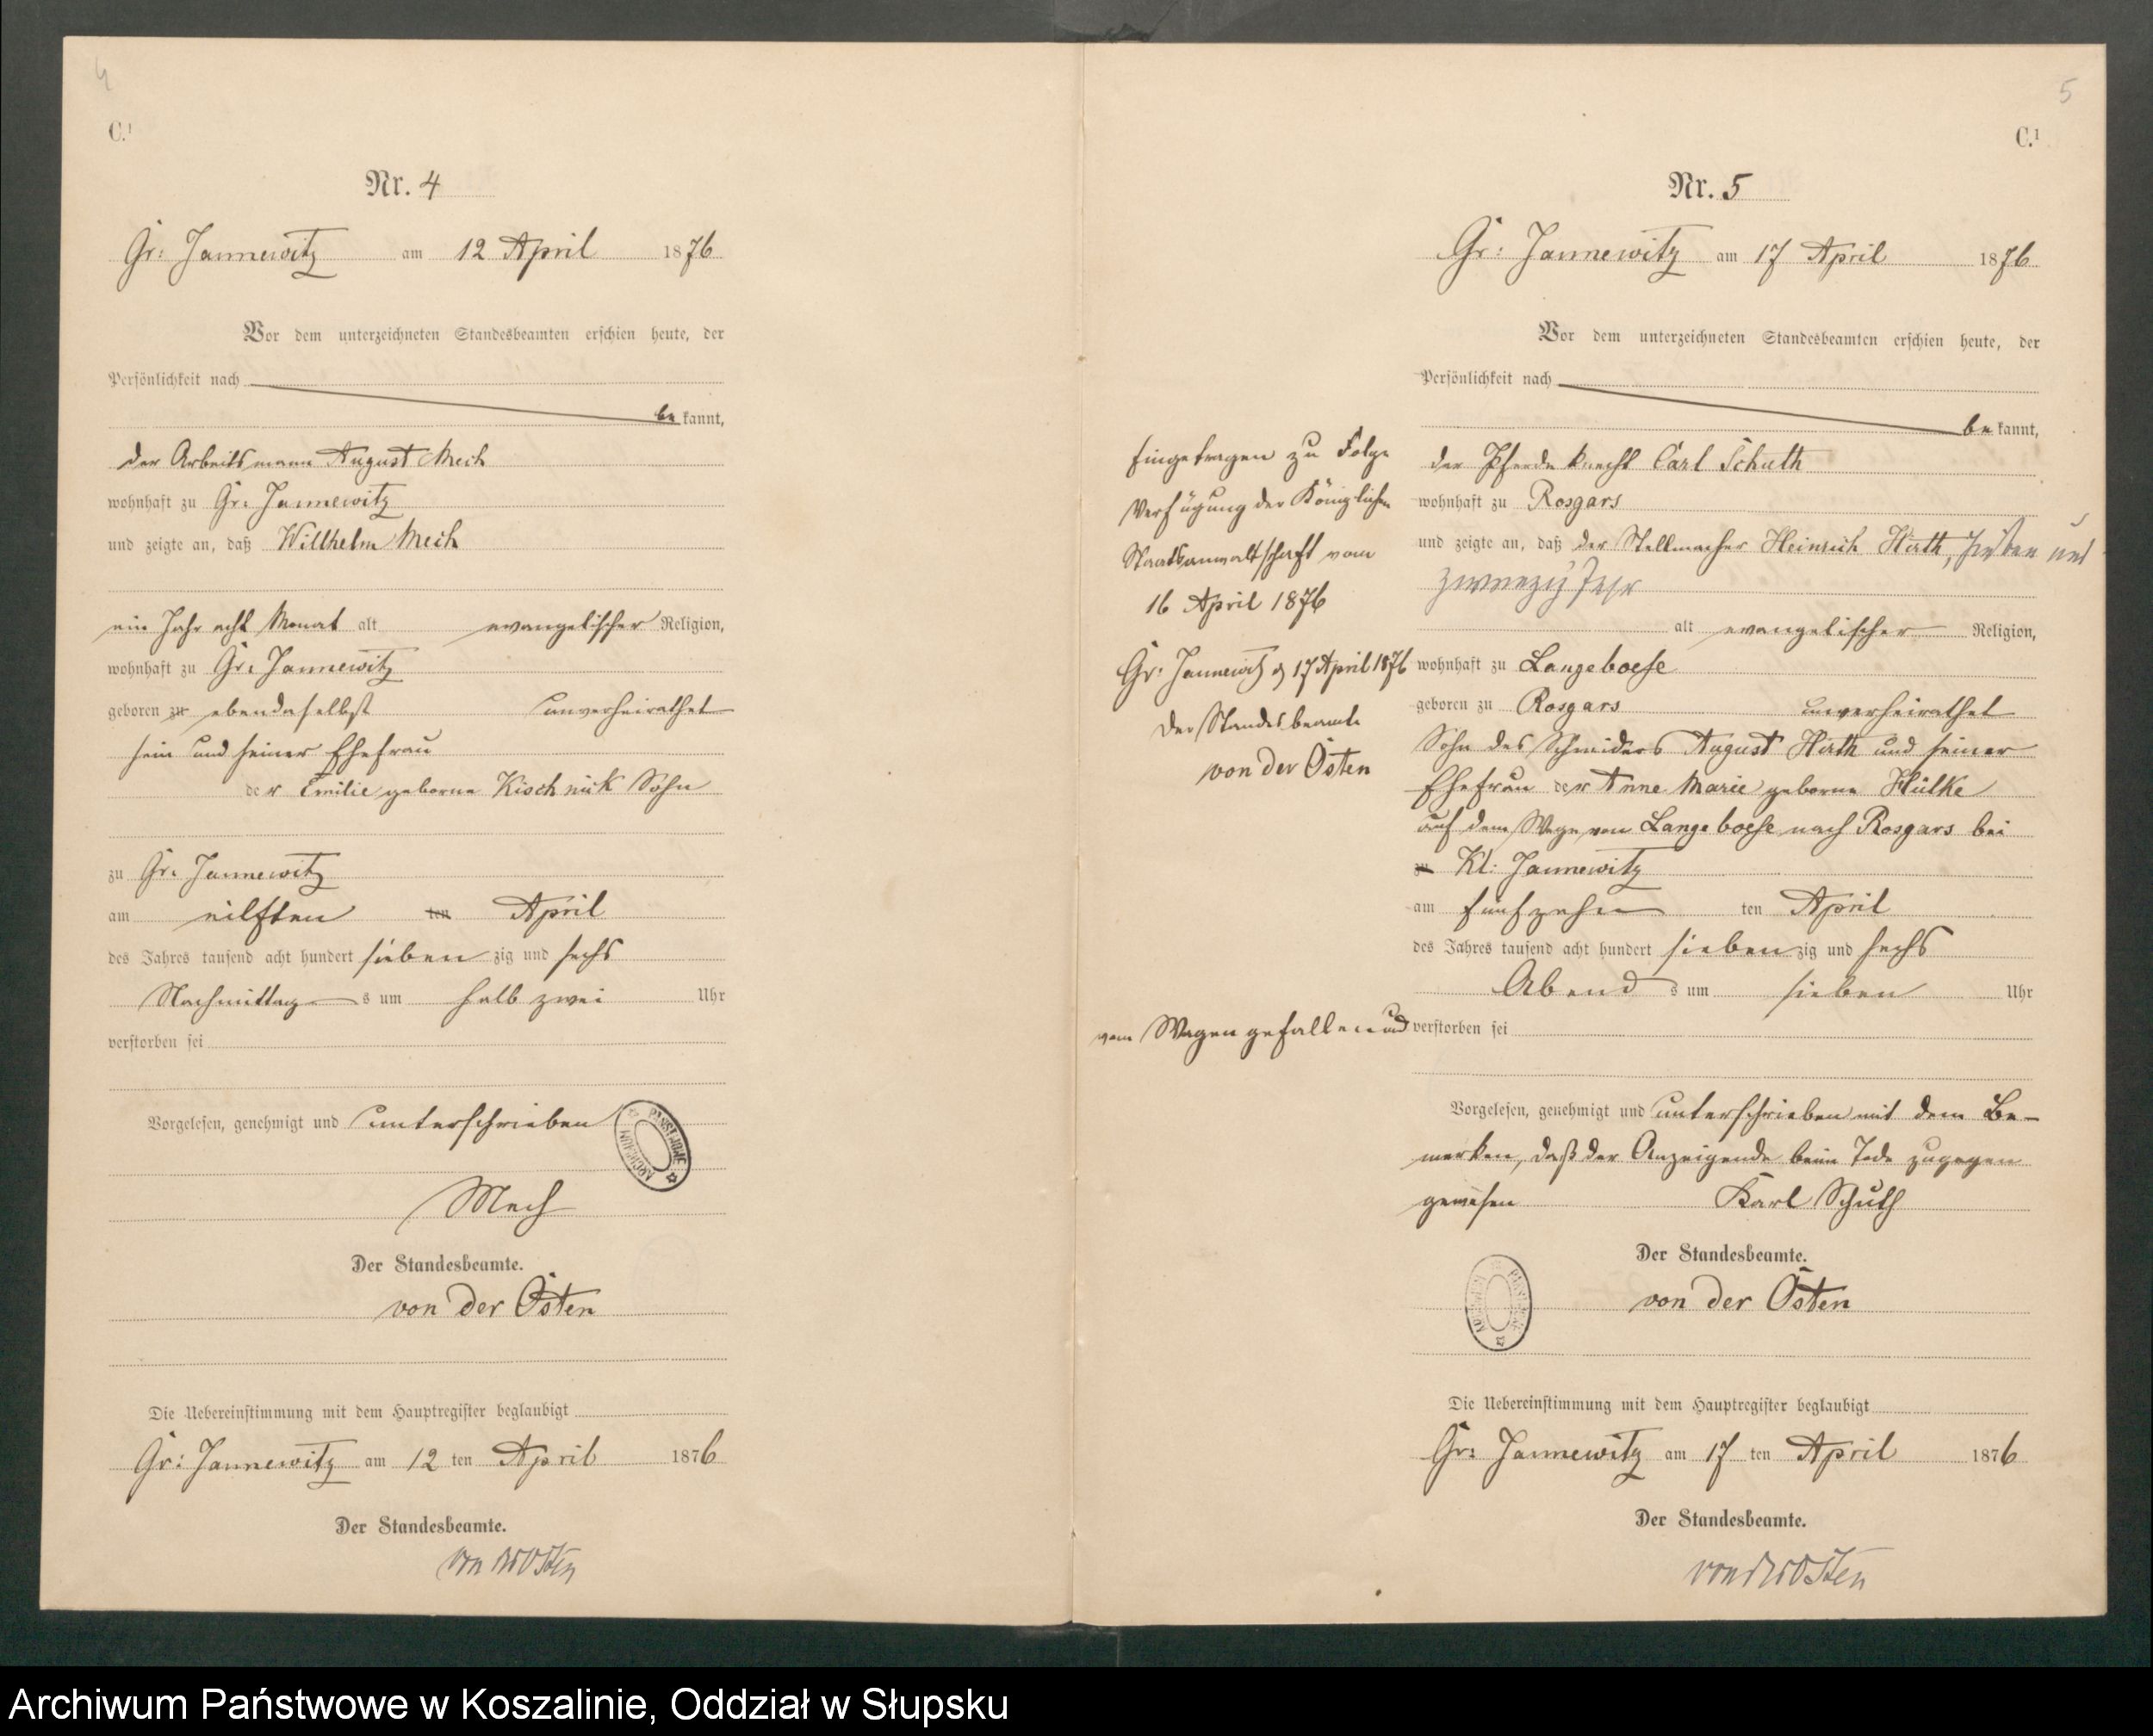 4
C.¹
Nr. 4
Gr: Jannewitz am 12 April 1876
Vor dem unterzeichneten Standesbeamten erschien heute, der
Persönlichkeit nach
be kannt,
der Arbeitsmann August Mech
wohnhaft zu Gr: Jannewitz
und zeigte an, daß Willhelm Mech
ein Jahr acht Monat alt evangelischer Religion,
wohnhaft zu Gr: Jannewitz
geboren zu ebendaselbst unverheirathet
sein und seiner Ehefrau
der Emilie geborne Kischnick Sohn
zu Gr: Jannewitz
am eilften ten April
des Jahres tausend acht hundert sieben zig und sechs
Nachmittag s um halb zwei Uhr
verstorben sei
Vorgelesen, genehmigt und unterschrieben
ARCHIWUM PAŃSTWOWE
Mech
Der Standesbeamte.
von der Osten
Die Uebereinstimmung mit dem Hauptregister beglaubigt
Gr: Jannewitz am 12 ten April 1876
Der Standesbeamte.
von der Osten
5
C.¹
Nr. 5
Gr: Jannewitz am 17 April 1876
Vor dem unterzeichneten Standesbeamten erschien heute, der
Persönlichkeit nach
be kannt,
der Pferdeknecht Carl Schuth
wohnhaft zu Rosgars
und zeigte an, daß der Stellmacher Heinrich Hirth, sieben und
zwanzig Jahr
alt evangelischer Religion,
wohnhaft zu Langeboese
geboren zu Rosgars unverheirathet
Sohn des Schneiders August Hirth und seiner
Ehefrau der Anne Marie geborne Hülke
auf dem Wege von Langeboese nach Rosgars bei
zu Kl: Jannewitz
am fünfzehn ten April
des Jahres tausend acht hundert sieben zig und sechs
Abend s um sieben Uhr
vom Wagen gefallen und verstorben sei
Vorgelesen, genehmigt und unterschrieben mit dem Be-
merken, daß der Anzeigende beim Tode zugegen
gewesen Karl Schuth
Der Standesbeamte.
von der Osten
ARCHIWUM PAŃSTWOWE
Die Uebereinstimmung mit dem Hauptregister beglaubigt
Gr: Jannewitz am 17 ten April 1876
Der Standesbeamte.
von der Osten
Eingetragen zu Folge
Verfügung der Königlichen
Staatsanwaltschaft vom
16 April 1876
Gr: Jannewitz d 17 April 1876
Der Standesbeamte
von der Osten
Archiwum Państwowe w Koszalinie, Oddział w Słupsku